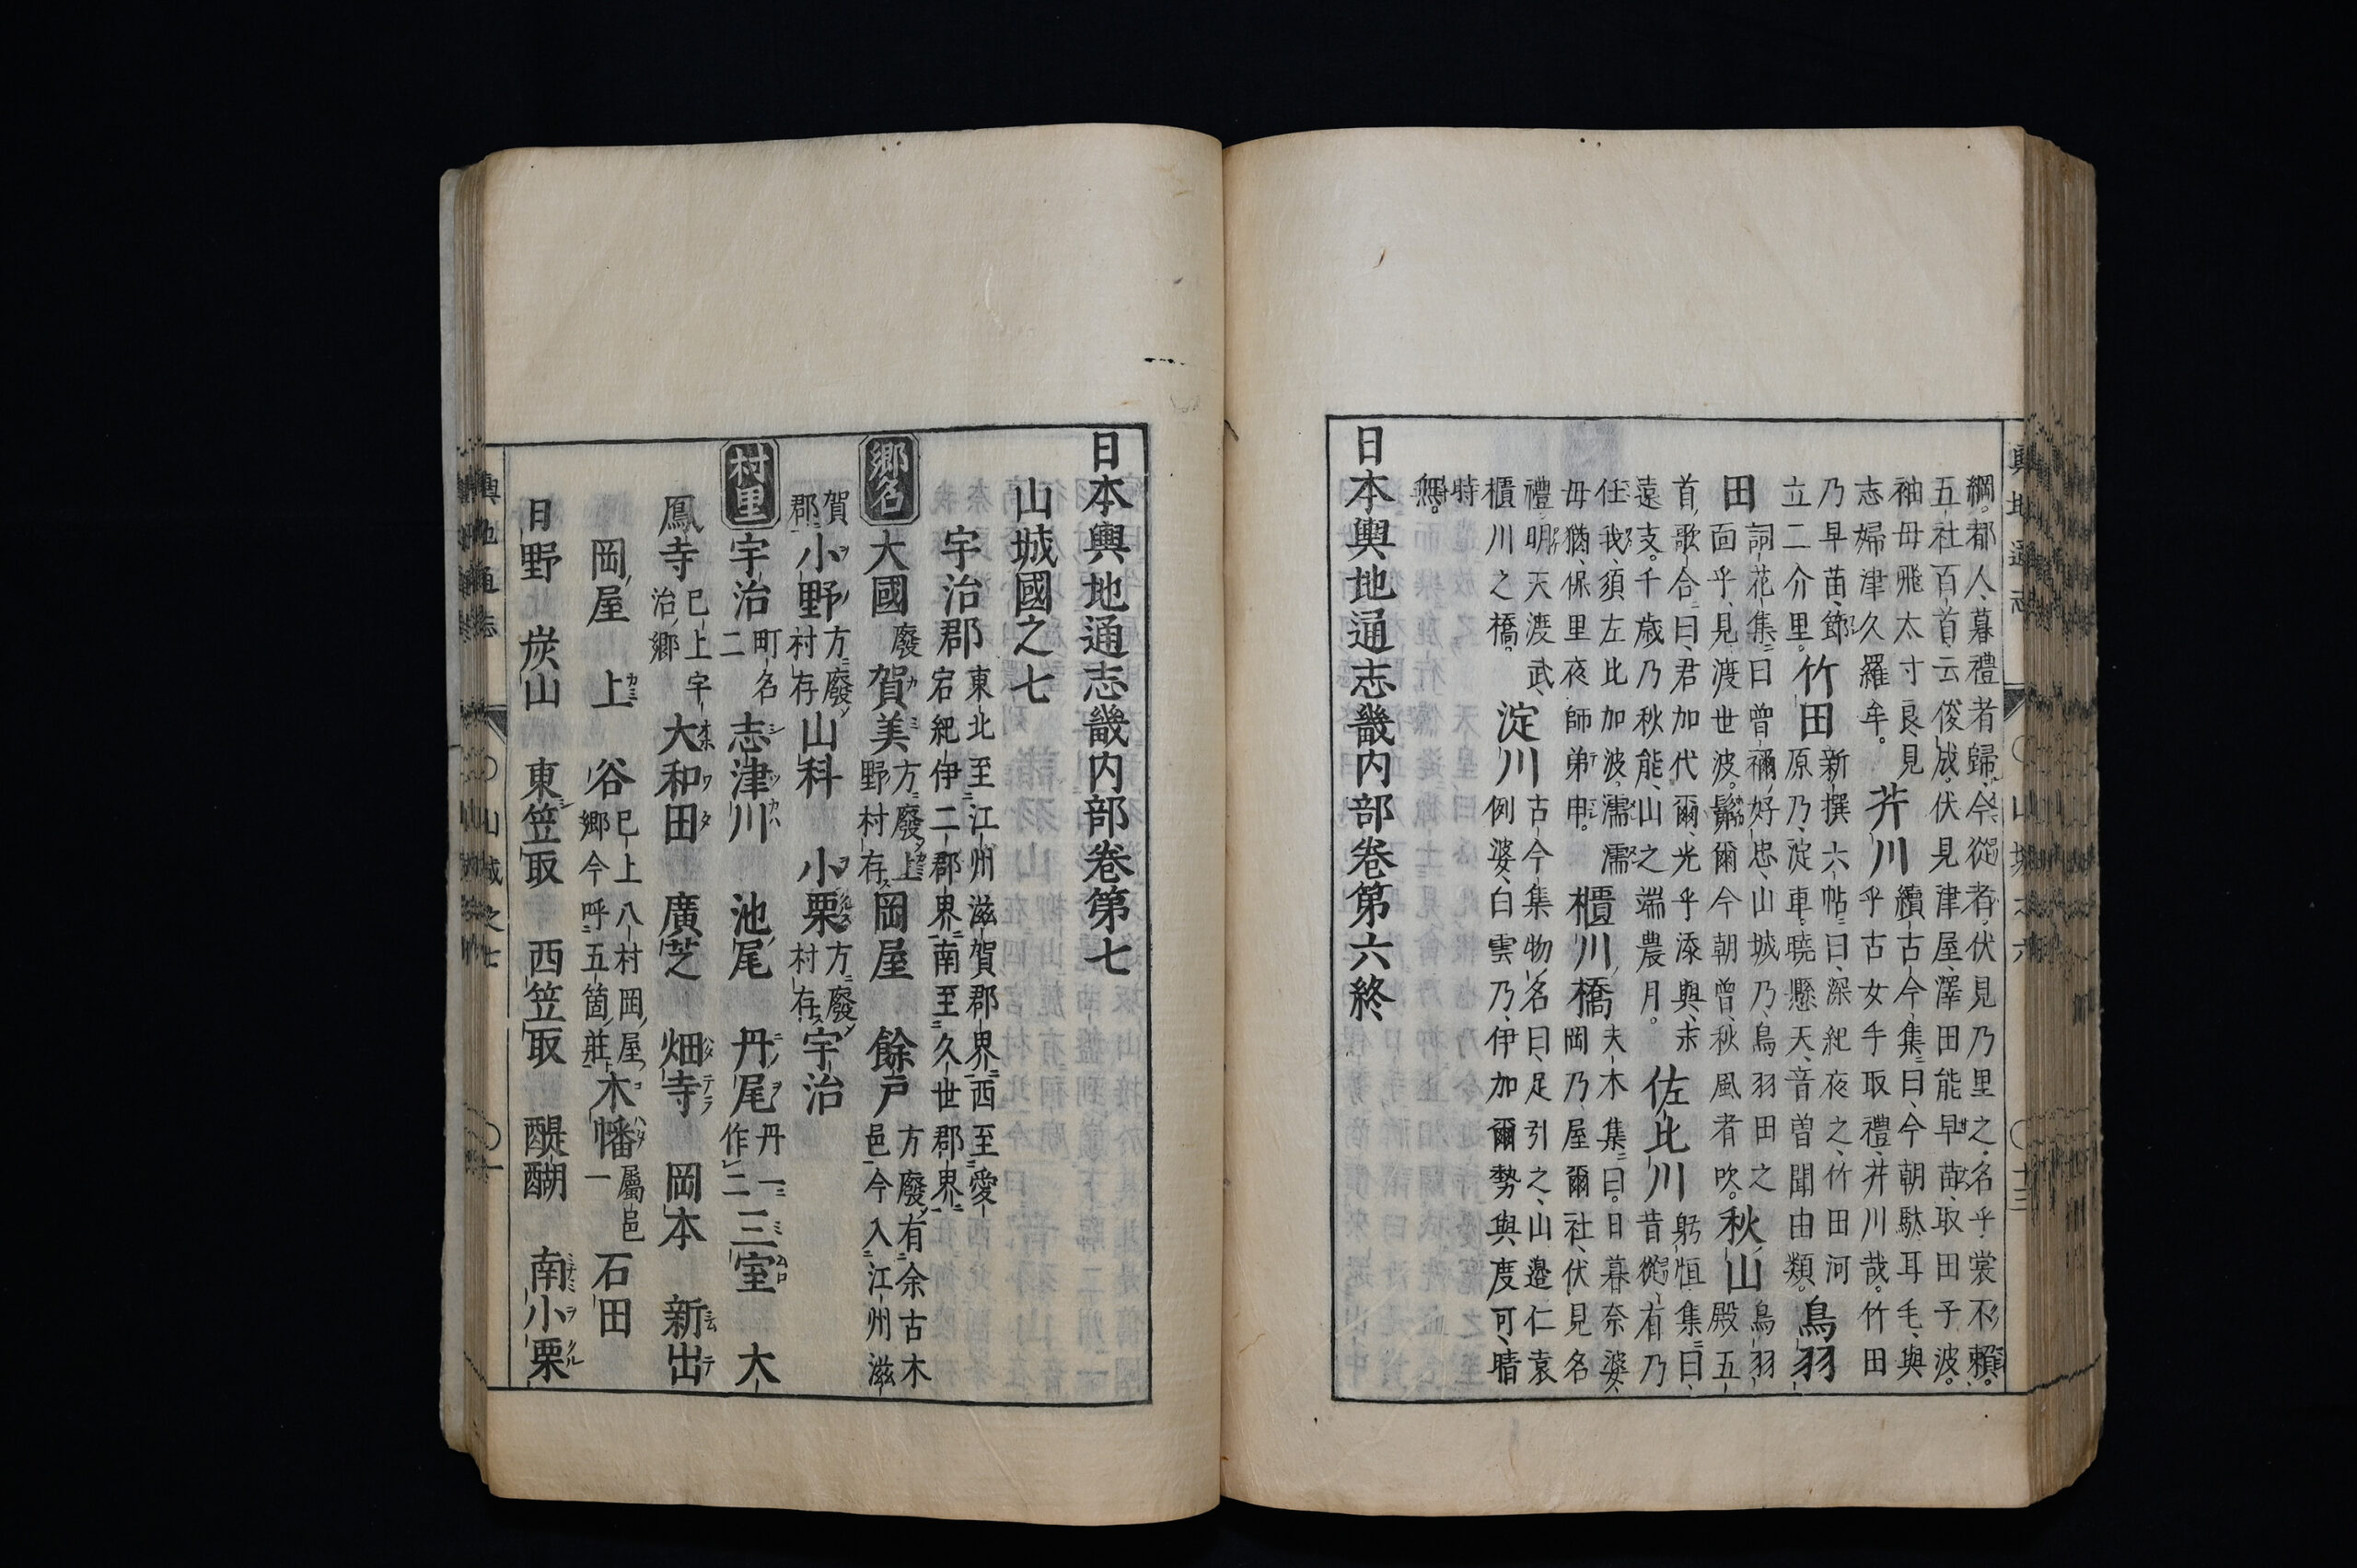 綱都人暮禮者歸今從者伏見乃里之名乎裳不賴
五社百首云俊成伏見津屋澤田能早苗取田子波
袖毋飛太寸良見
芥川
續古今集曰今朝駄耳毛與
志婦津久羅牟
乎古女手取禮井川哉竹田
乃早苗節
竹田
新撰六帖曰深紀夜之竹田河
立二介里
原乃淀車曉懸天音曽聞由類
鳥羽
田
詞花集曰曽禰好忠山城乃鳥羽田之
面乎見渡世波鬅爾今朝曽秋風者吹
秋山
鳥羽
殿五
首歌合曰君加代爾光乎添與末
遠支千歳乃秋能山之端農月
佐比川
躬恒集曰
昔從有乃
任我須左比加波濡濡
毋猶保里夜師弟申
櫃川橋
夫木集曰日暮奈婆
岡乃屋爾社伏見名
禮明天渡武
櫃川之橋
淀川
古今集物名曰足引之山邉仁袁
例婆白雲乃伊加爾勢與度可晴
時
無
日本輿地通志畿内部卷第六終
輿地通志
山城之六
十三
日本輿地通志畿内部卷第七
山城國之七
宇治郡
東北至江州滋賀郡界西至愛
宕紀伊二郡界南至久世郡界
郷名
大國
廢
賀美
方廢上
野村存
岡屋
餘戸
方廢有余古木
邑今入江州滋
賀
郡
小野
方廢
村存
山科
小栗
方廢
村存
宇治
村里
宇治
町名
二
志津川
池尾
丹尾
丹一
作二
三室
大
鳳寺
已上宇
治郷
大和田
廣芝
畑寺
岡本
新出
岡屋
上
谷
已上八村岡屋
郷今呼五箇莊
木幡
屬邑
一
石田
日野
炭山
東笠取
西笠取
醍醐
南小栗
輿地通志
山城之七
一